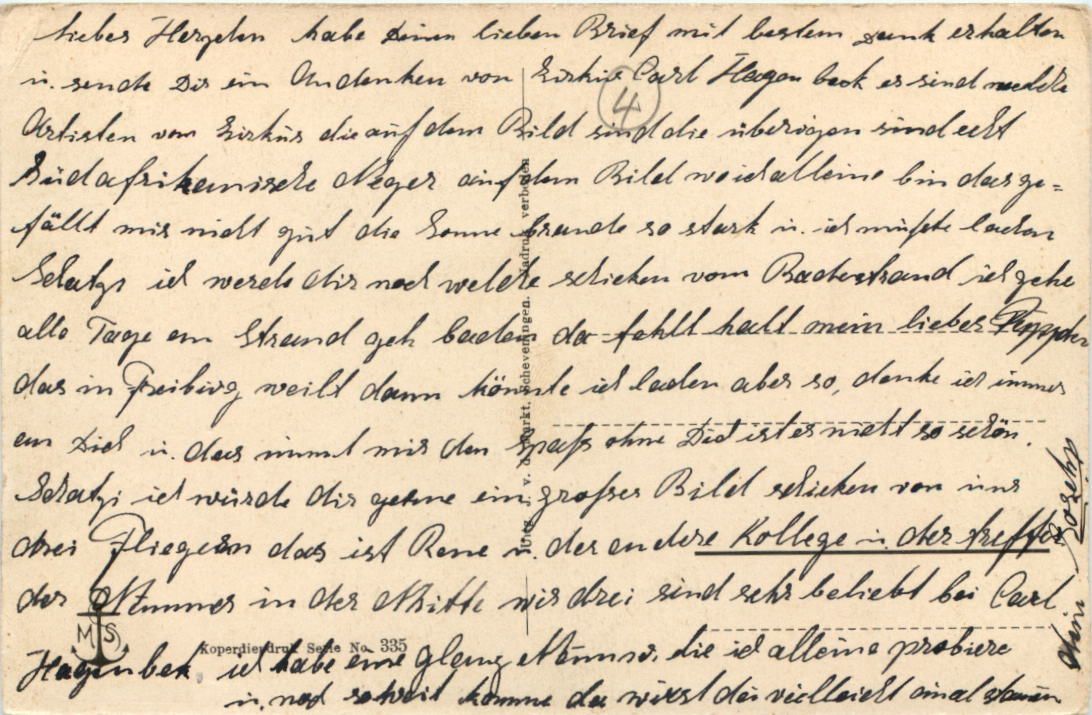 liebes Herzelen habe Deinen lieben Brief mit bestem Dank erhalten
u. sende Dir ein Andenken von Zirkus Carl Hagen beck es sind welche
4
Artisten vom Zirkus die auf dem Bild sind die überigen sind echt
Südafrikanische Neger auf dem Bild wo ich alleine bin das ge=
fällt mir nicht gut die Sonne brande so stark u. ich mußte lachen
Schatzi ich werde dir noch welche schicken vom Badestrand ich gehe
alle Tage am Strand geh baden da fehlt halt mein liebes
das in Freiburg weilt dann könnte ich lachen aber so, denke ich immer
an Dich u. das nimmt mir den Spaß ohne Dich ist es nicht so schön.
Schatzi ich würde dir gerne ein großes Bild schicken von uns
drei Fliegern das ist Rene u. der andere Kollege u. der
der Nummer in der Mitte wir drei sind sehr beliebt bei Carl
Hagenbek ich habe eine Nummer, die ich alleine probiere
u. noch soweit komme da wirst du vielleicht einmal staunen
Dein
Uitg. J. v. d. Markt, Scheveningen. Nadruk verboden
M S
Koperdiepdruk Serie No. 335